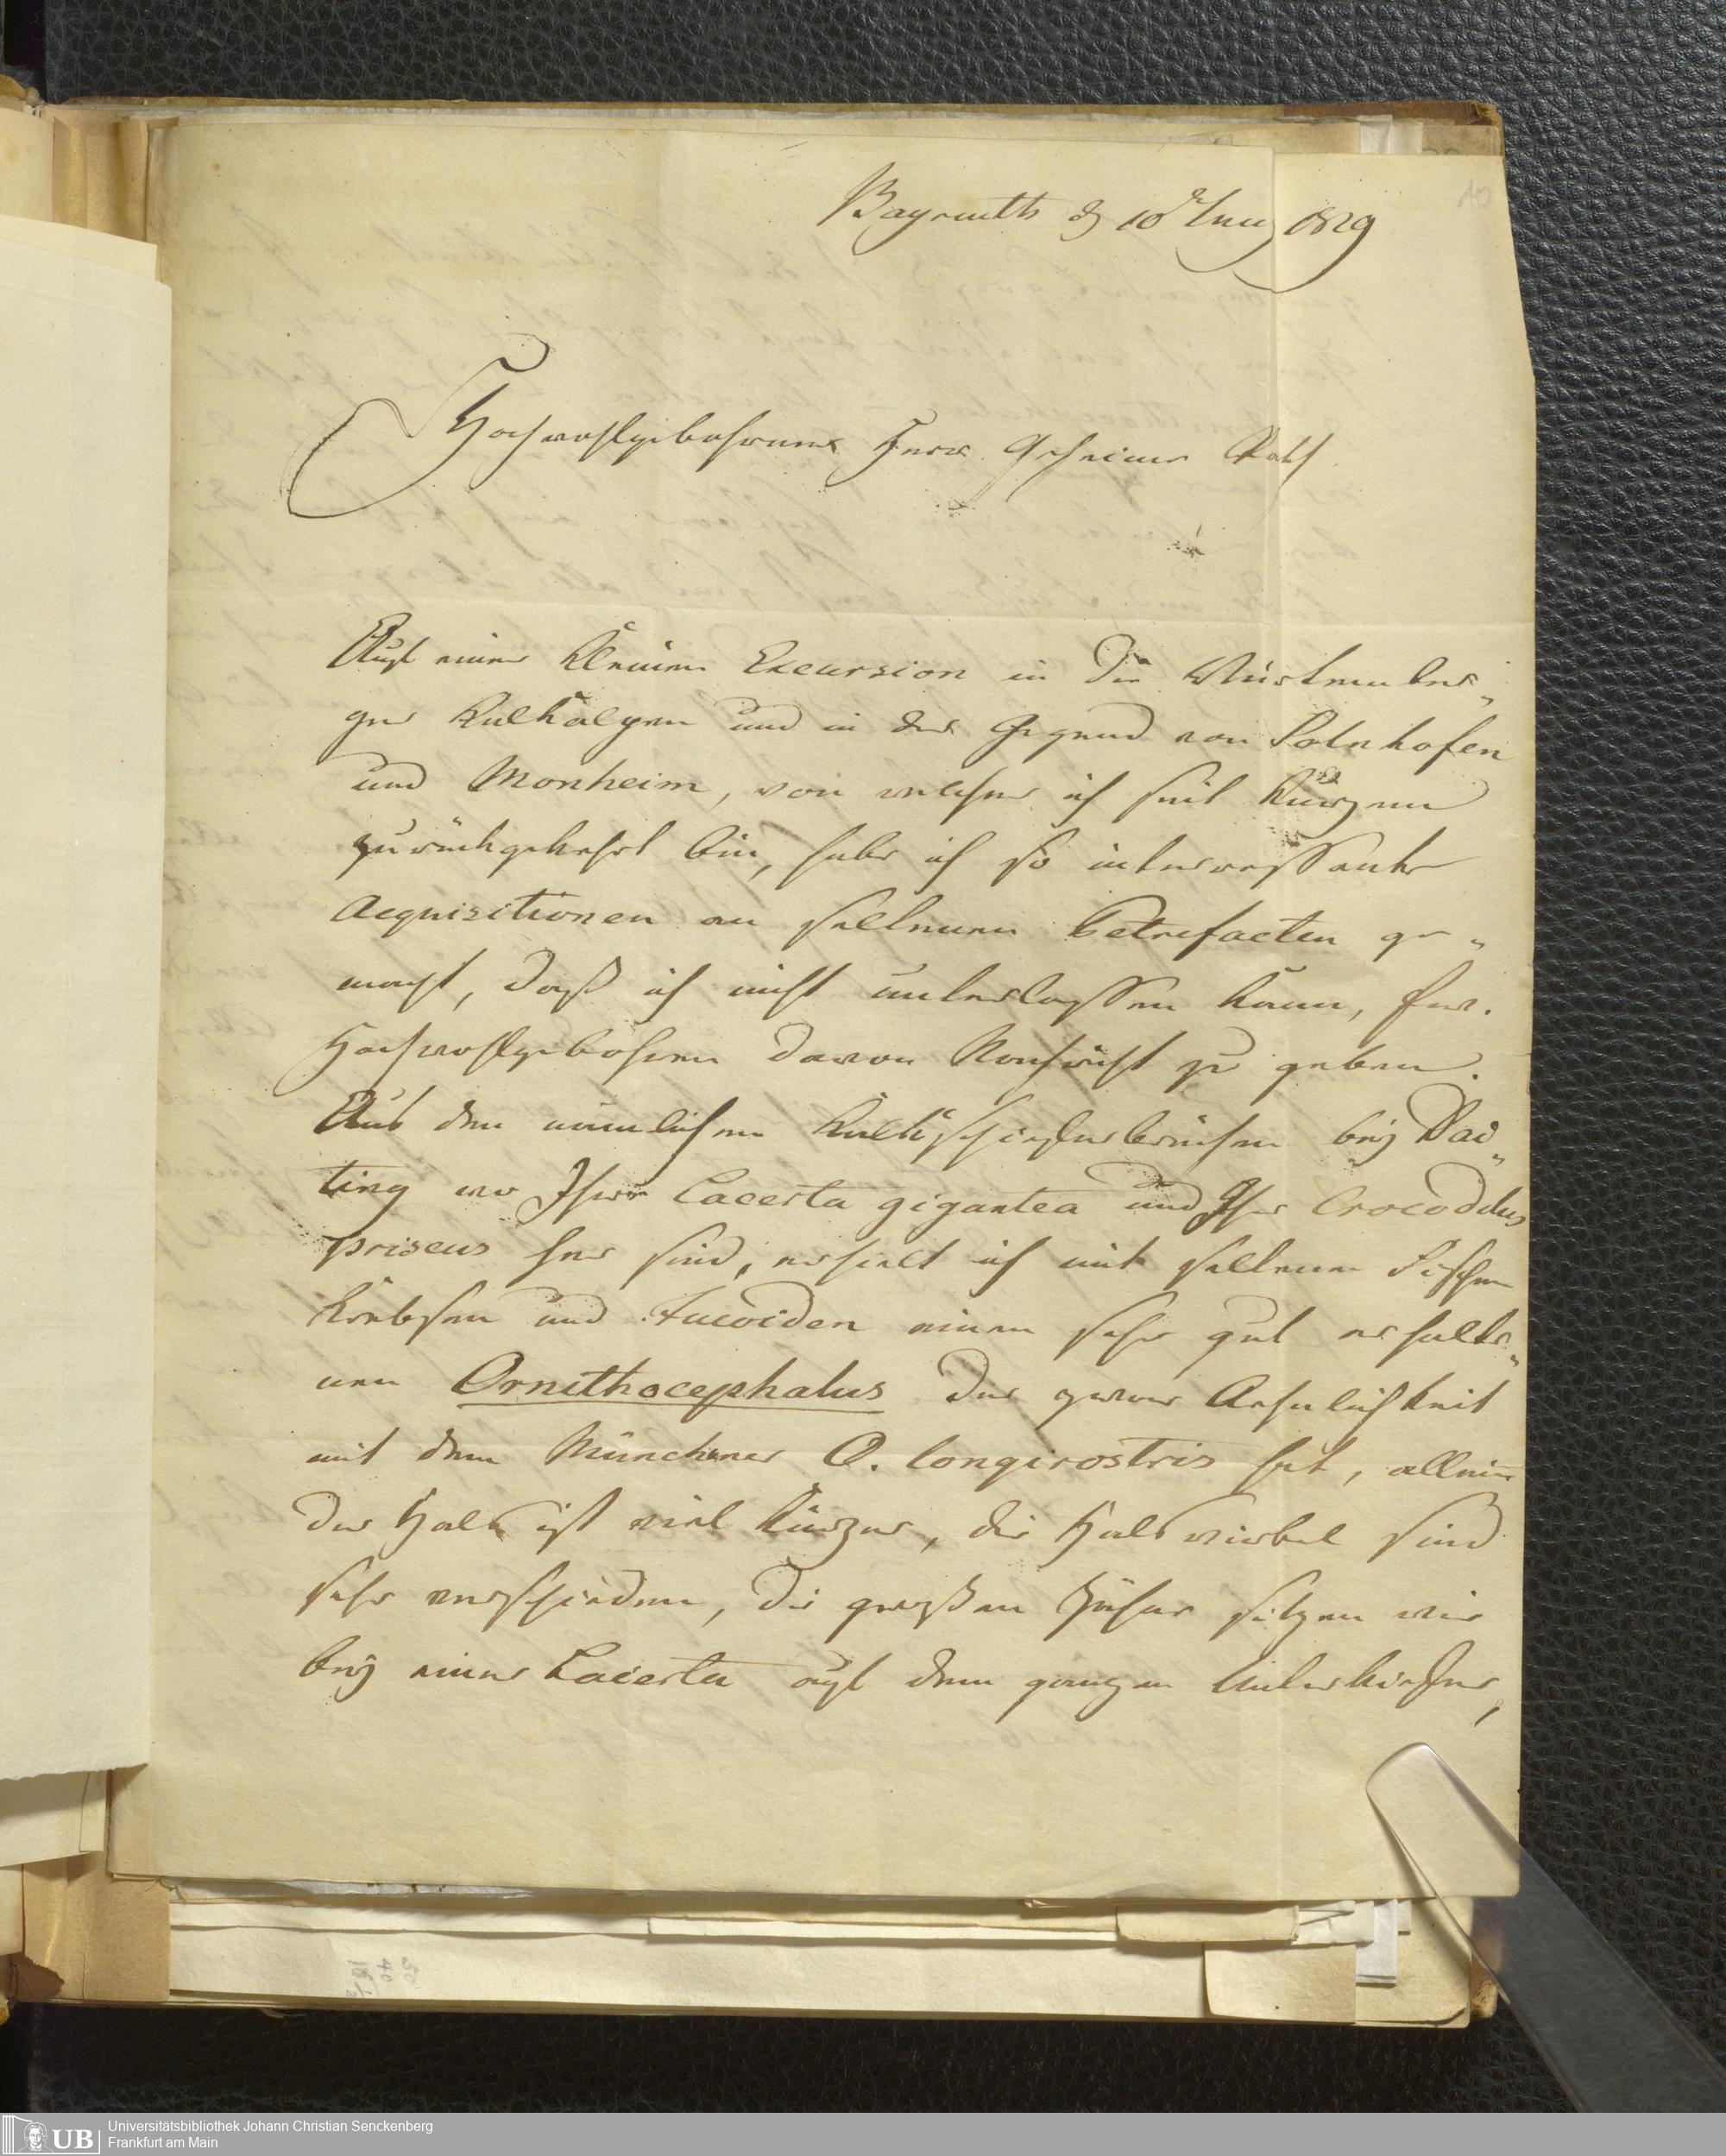 Bayreuth d 10t Juny 1829
10
Hochwohlgebohrener Herr Geheimer Rath
Auf einer kleinen Excursion in die Würtember„
ger und in der Gegend von Solnhofen
und Monheim, von welcher ich seit kurzem
zurückgekehrt bin, habe ich so interressante
Acquisitionen an seltenen Petrefacten ge„
macht, daß ich nicht unterlassen kann, Euer.
Hochwohlgebohren davon Nachricht zu geben.
Aus den nämlichen Kalkschieferbrüchen bey Dai„
ting wo Ihre Lacerta gigantea und Ihr Crocodilus
priscus her sind, erhielt ich mit seltenen Fischen
Krebsen und Fucoiden einen sehr gut erhalte„
nen Ornithocephalus der zwar Aehnlichkeit
mit dem Münchner O. longirostris hat, allein
der Hals ist viel kürzer, die Halswirbel sind
sehr verschieden, die großen Zähne sitzen wie
bey einer Lacerta auf dem ganzen Unterkiefer,
UB
Universitätsbibliothek Johann Christian Senckenberg
Frankfurt am Main